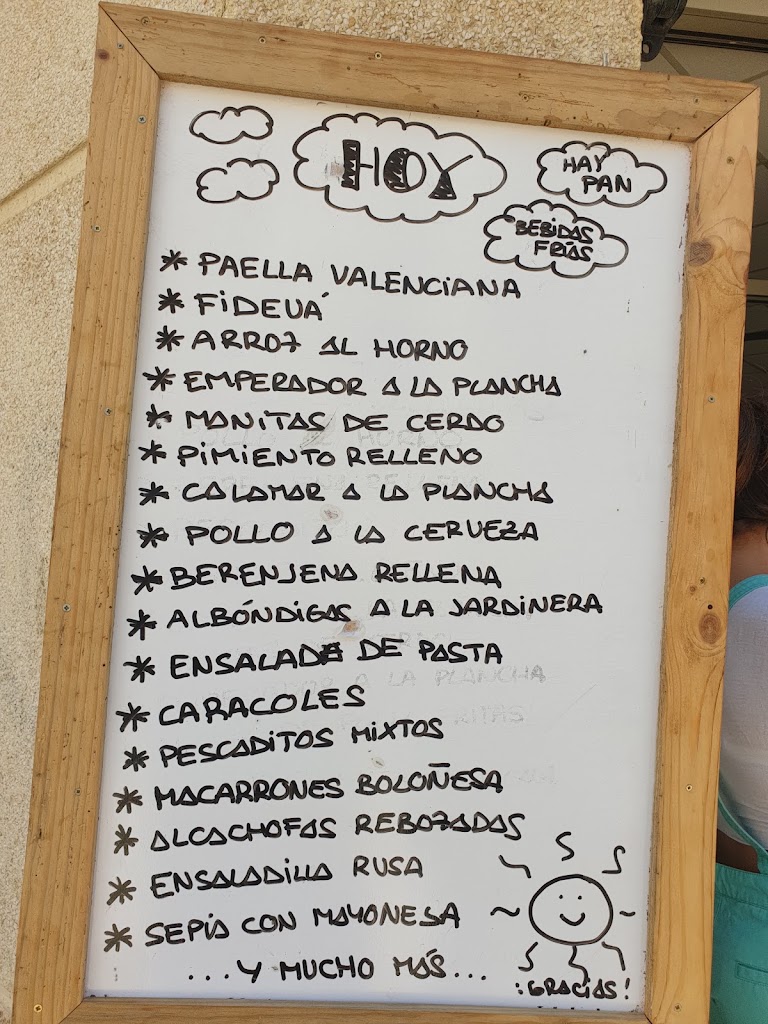 HOY
HAY
PAN
BEBIDAS
FRÍAS
* PAELLA VALENCIANA
* FIDEUÁ
* ARROZ AL HORNO
* EMPERADOR A LA PLANCHA
* MANITAS DE CERDO
* PIMIENTO RELLENO
* CALAMAR A LA PLANCHA
* POLLO A LA CERVEZA
* BERENJENA RELLENA
* ALBÓNDIGAS A LA JARDINERA
* ENSALADA DE PASTA
* CARACOLES
* PESCADITOS MIXTOS
* MACARRONES BOLOÑESA
* ALCACHOFAS REBOZADAS
* ENSALADILLA RUSA
* SEPIA CON MAYONESA
...Y MUCHO MÁS...
¡GRACIAS!